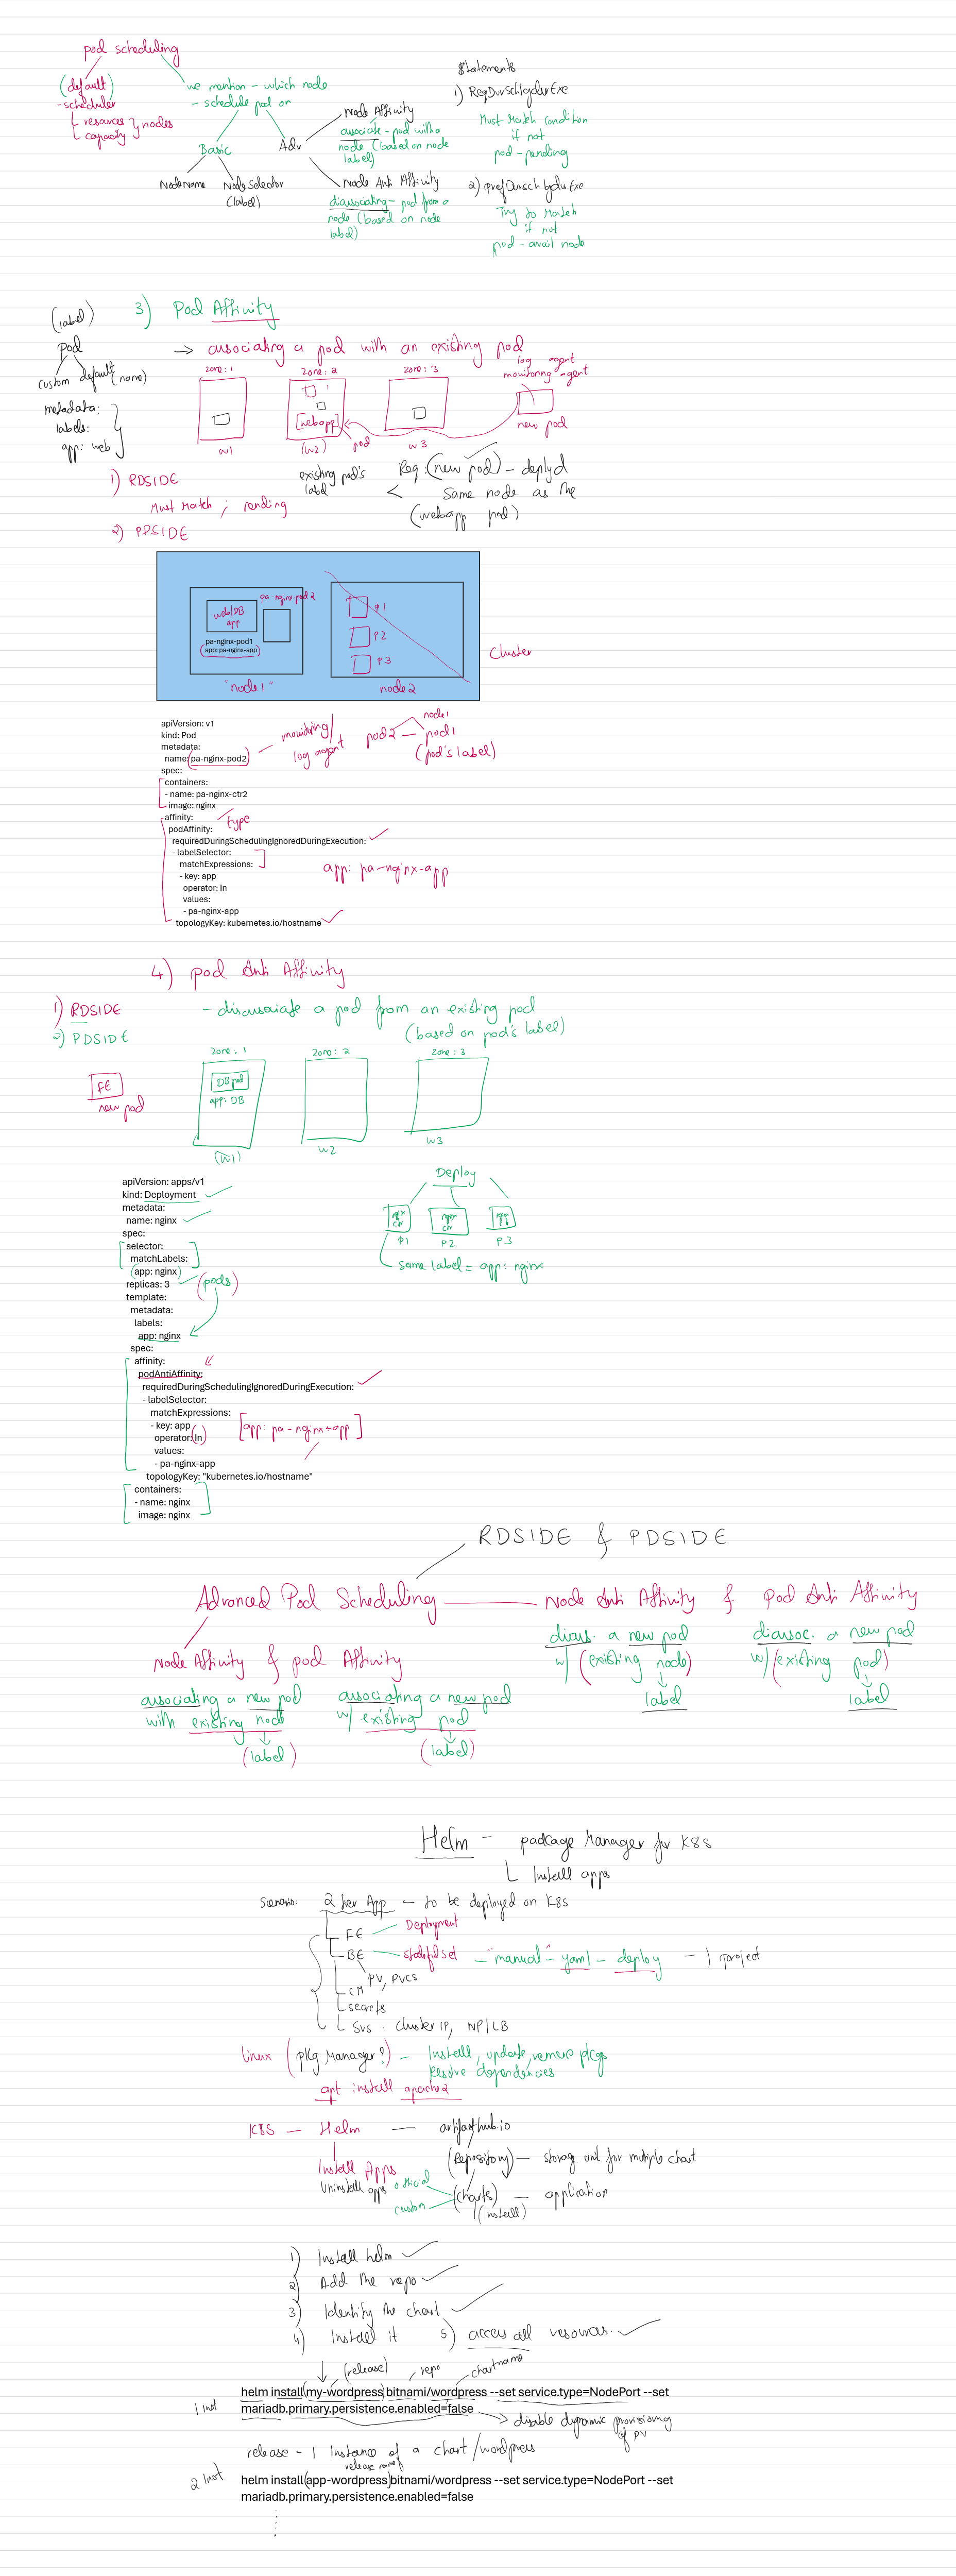 pod scheduling
(default)
- scheduler
resources
capacity
nodes
we mention - which node
- schedule pod on
Basic
NodeName
NodeSelector
(label)
Adv
Node Affinity
associate - pod with a
node (based on node
label)
Node Anti Affinity
disassociating - pod from a
node (based on node
label)
Statements
1)
Must Match condition
if not
pod - pending
2)
Try to Match
if not
pod - avail node
3) Pod Affinity
(label)
pod
custom default (name)
metadata:
labels:
app: web
→ associating a pod with an existing pod
zone: 1
zone: 2
zone: 3
[webapp]
w1
(w2)
pod
w3
log agent
monitoring agent
new pod
1) RDSIDE
Must Match ; pending
2) PDSIDE
existing pod's
label
Req: (new pod) - deplyd
< same node as the
(webapp pod)
web/DB
app
pa-nginx-pod1
app: pa-nginx-app
pa-nginx-pod2
"node1"
P1
P2
P3
node2
cluster
apiVersion: v1
kind: Pod
metadata:
name: pa-nginx-pod2
spec:
containers:
- name: pa-nginx-ctr2
image: nginx
affinity:
podAffinity:
requiredDuringSchedulingIgnoredDuringExecution:
- labelSelector:
matchExpressions:
- key: app
operator: In
values:
- pa-nginx-app
topologyKey: kubernetes.io/hostname
monitoring/
log agent
node1
pod2 — pod1
(pod's label)
type
app: pa-nginx-app
4) pod Anti Affinity
1) RDSIDE
2) PDSIDE
- disassociate a pod from an existing pod
(based on pod's label)
FE
new pod
zone: 1
zone: 2
zone: 3
DB pod
app: DB
(w1)
w2
w3
apiVersion: apps/v1
kind: Deployment
metadata:
name: nginx
spec:
selector:
matchLabels:
app: nginx
replicas: 3
(pods)
template:
metadata:
labels:
app: nginx
spec:
affinity:
podAntiAffinity:
requiredDuringSchedulingIgnoredDuringExecution:
- labelSelector:
matchExpressions:
- key: app
operator: In
values:
- pa-nginx-app
topologyKey: "kubernetes.io/hostname"
containers:
- name: nginx
image: nginx
[app: pa-nginx-app]
Deploy
P1
P2
P3
same label = app: nginx
RDSIDE & PDSIDE
Advanced Pod Scheduling
Node Affinity & pod Affinity
associating a new pod
with existing node
(label)
associating a new pod
w/ existing pod
(label)
Node Anti Affinity & Pod Anti Affinity
disass. a new pod
w/ (existing node)
label
disassoc. a new pod
w/ (existing pod)
label
Helm - package Manager for K8S
Install apps
Scenario: 2 tier App - to be deployed on K8S
FE - Deployment
BE - statefulset - "manual" - yaml - deploy - 1 project
PV, PVCS
CM
secrets
Svs : cluster IP, NP/LB
Linux (pkg Manager?) - Install, update, remove pkgs
Resolve dependencies
apt install apache2
K8S - Helm - artifacthub.io
Install Apps
Uninstall apps
(Repository) - storage unit for multiple chart
official
custom
(charts) - application
(Install)
1) Install helm
2) Add the repo
3) Identify the chart
4) Install it
5) access all resources
(release)
repo
chartname
1 inst
helm install my-wordpress bitnami/wordpress --set service.type=NodePort --set
mariadb.primary.persistence.enabled=false
→ disable dynamic provisioning
of PV
release - 1 Instance of a chart/wordpress
release name
2 Inst
helm install app-wordpress bitnami/wordpress --set service.type=NodePort --set
mariadb.primary.persistence.enabled=false